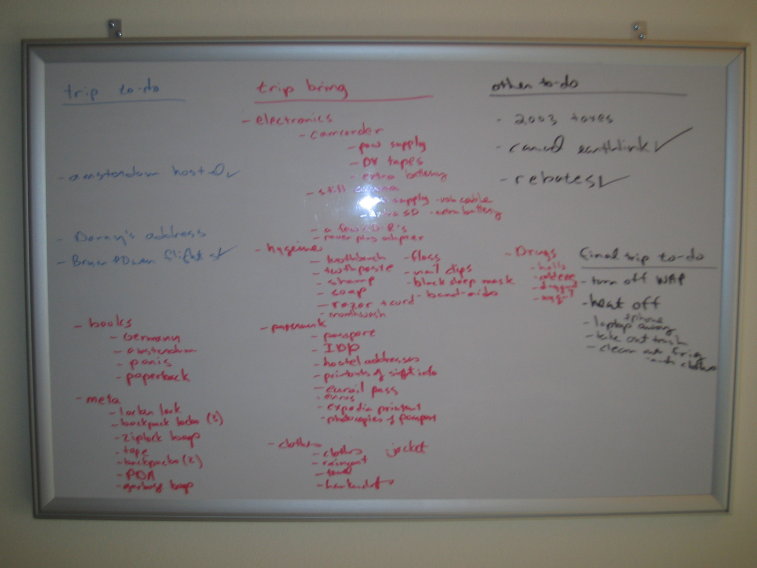 trip to-do
- amsterdam hostel ✓
- Danny's address
- flights ✓
- books
- Germany
- amsterdam
- paris
- paperback
- meta
- locker lock
- backpack locks (2)
- ziplock bags
- tape
- backpacks (2)
- PDA
- garbage bags
trip bring
- electronics
- camcorder
- pow supply
- DV tapes
- extra battery
- still camera
supply - usb cable
SD - extra battery
- a few CD-R's
- power plug adapter
- hygiene
- toothbrush
- toothpaste
- shamp
- soap
- razor
- mouthwash
- floss
- nail clips
- black sleep mask
- band-aids
- paperwork
- passport
- IDP
- hostel addresses
- printouts of sight info
- eurail pass
- euros
- expedia printout
- photocopies of passport
- clothes
- clothes
- rainyout
- towel
jacket
- Drugs
other to-do
- 2003 taxes
- cancel earthlink ✓
- rebates ✓
final trip to-do
- turn off WAP
- heat off
+ phone
- laptop away
- take out trash
- clean out frig